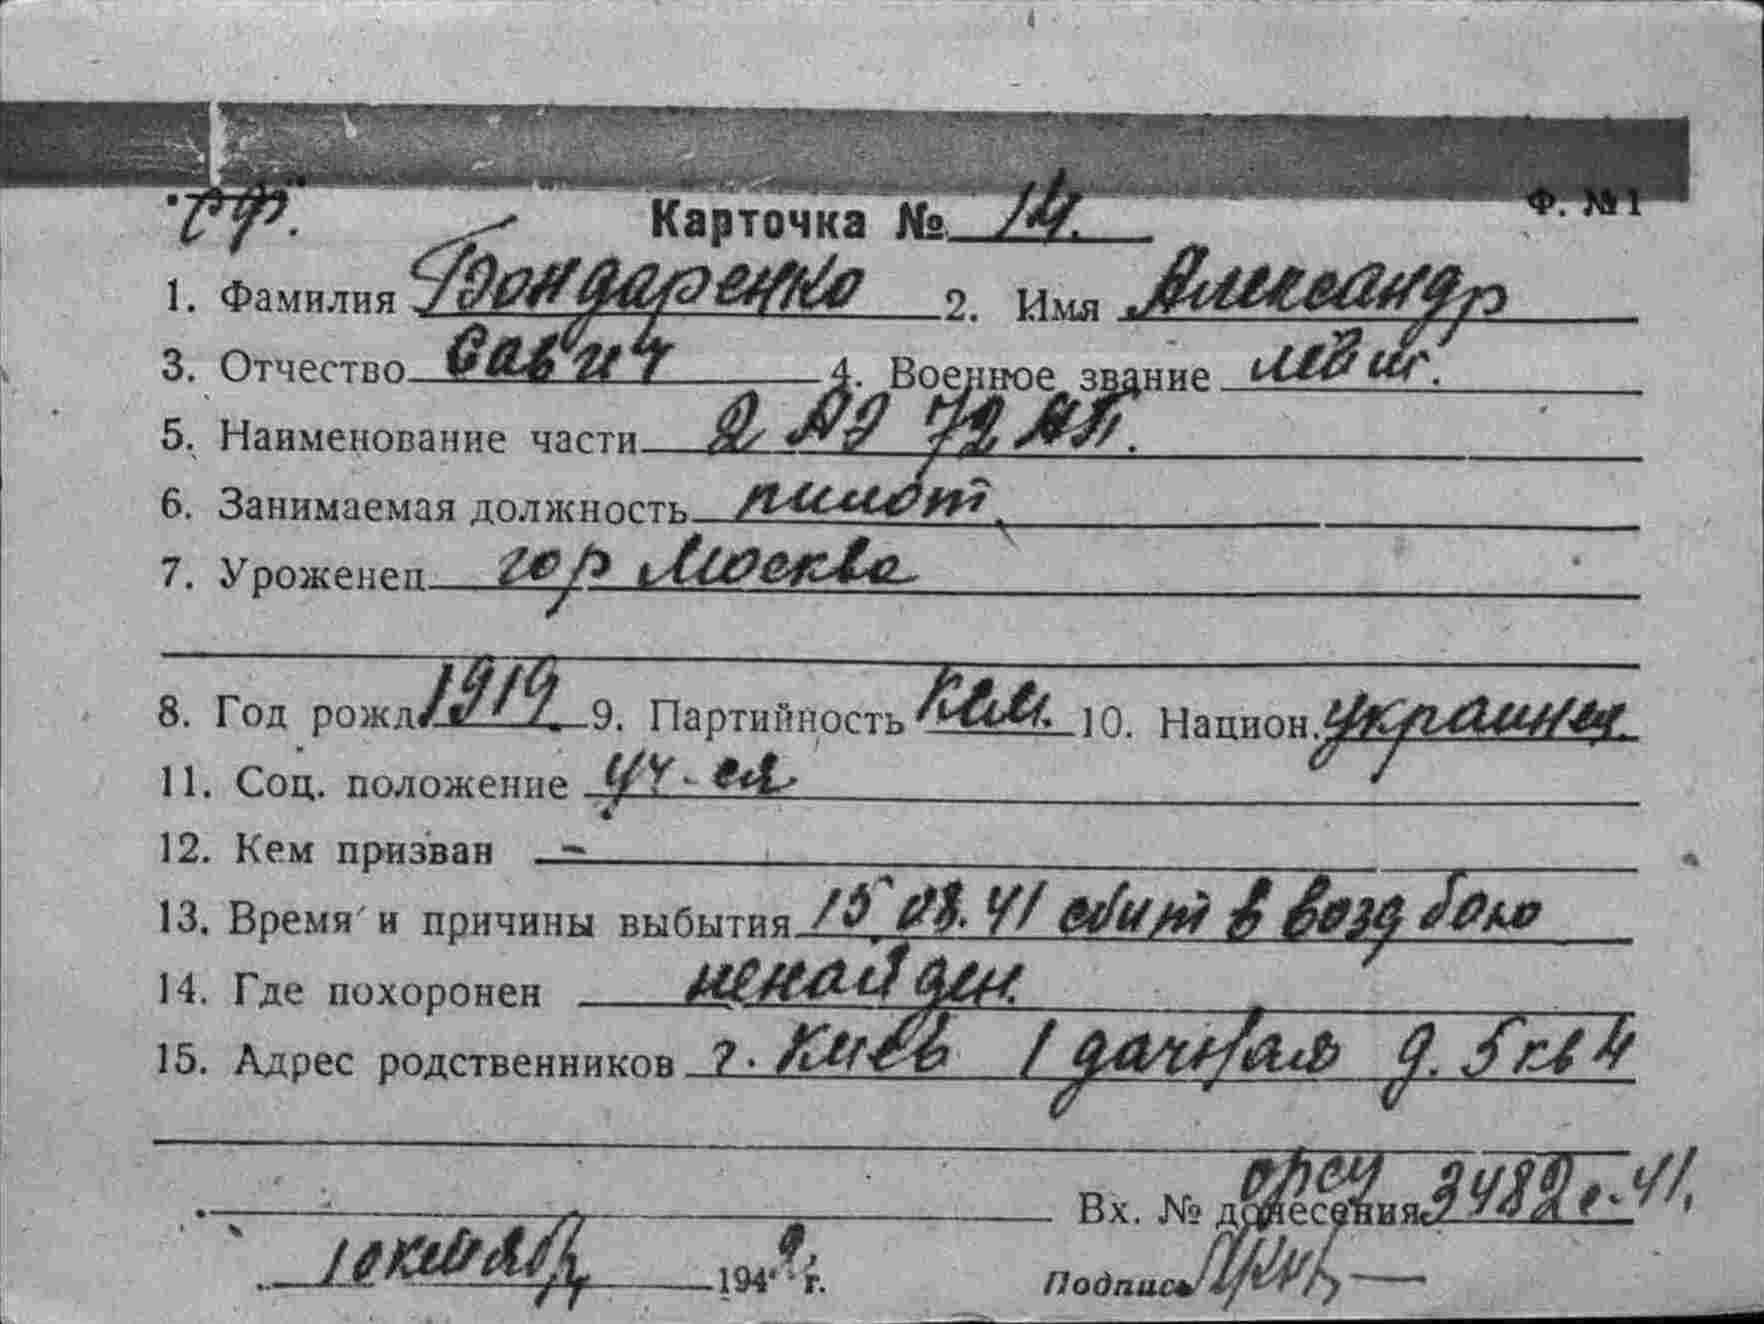 Ф. №1
Карточка № 14.
1. Фамилия Бондаренко 2. Имя Александр
3. Отчество Савич 4. Военное звание
5. Наименование части 2 АЭ 72 АП.
6. Занимаемая должность пилот
7. Уроженец гор Москва
8. Год рожд. 1919 9. Партийность 10. Национ. украинец
11. Соц. положение
12. Кем призван -
13. Время и причины выбытия 15.08.41 сбит в возд бою
14. Где похоронен ненайден.
15. Адрес родственников г. Киев 1 дачная д. 5 кв 4
Вх. № донесения 3482 с-41.
1 октября 194 г.
Подпись